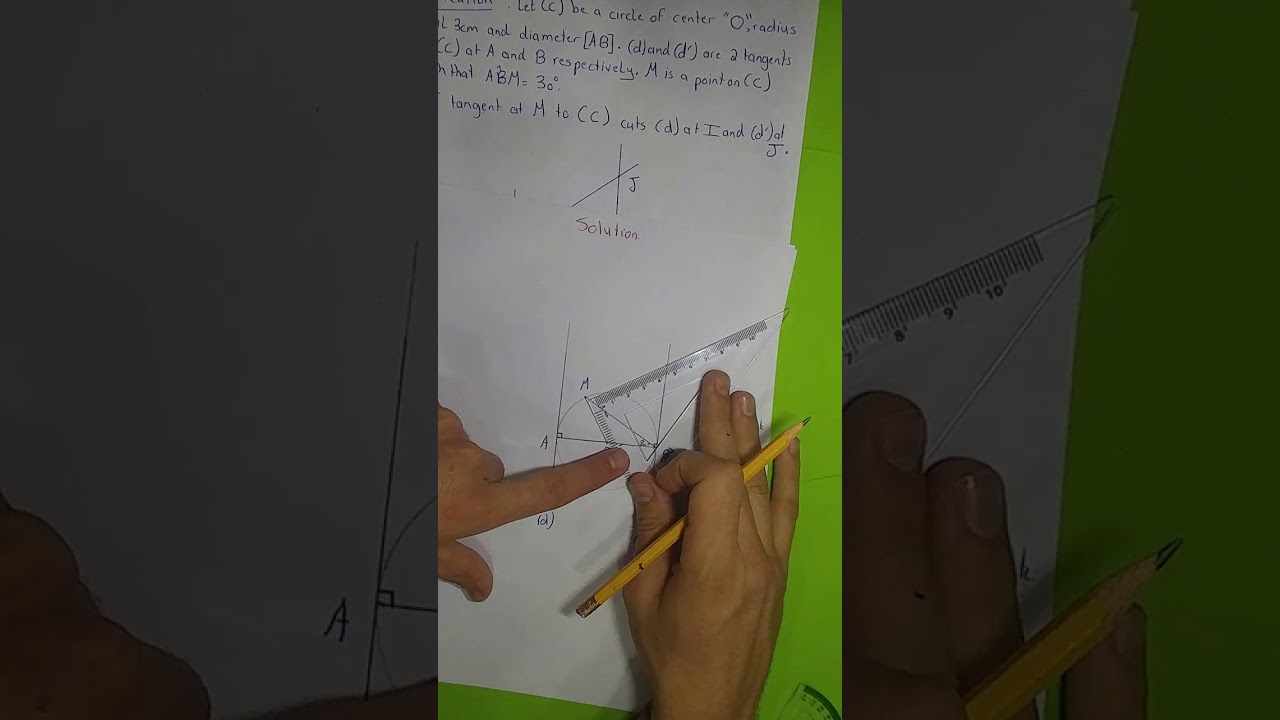 Let (C) be a circle of center "O", radius
3cm and diameter [AB]. (d) and (d') are 2 tangents
(C) at A and B respectively. M is a point on (C)
that AB̂M = 30°.
tangent at M to (C) cuts (d) at I and (d') at
J.
J
Solution.
M
A
(d)
7 8 9 10
A